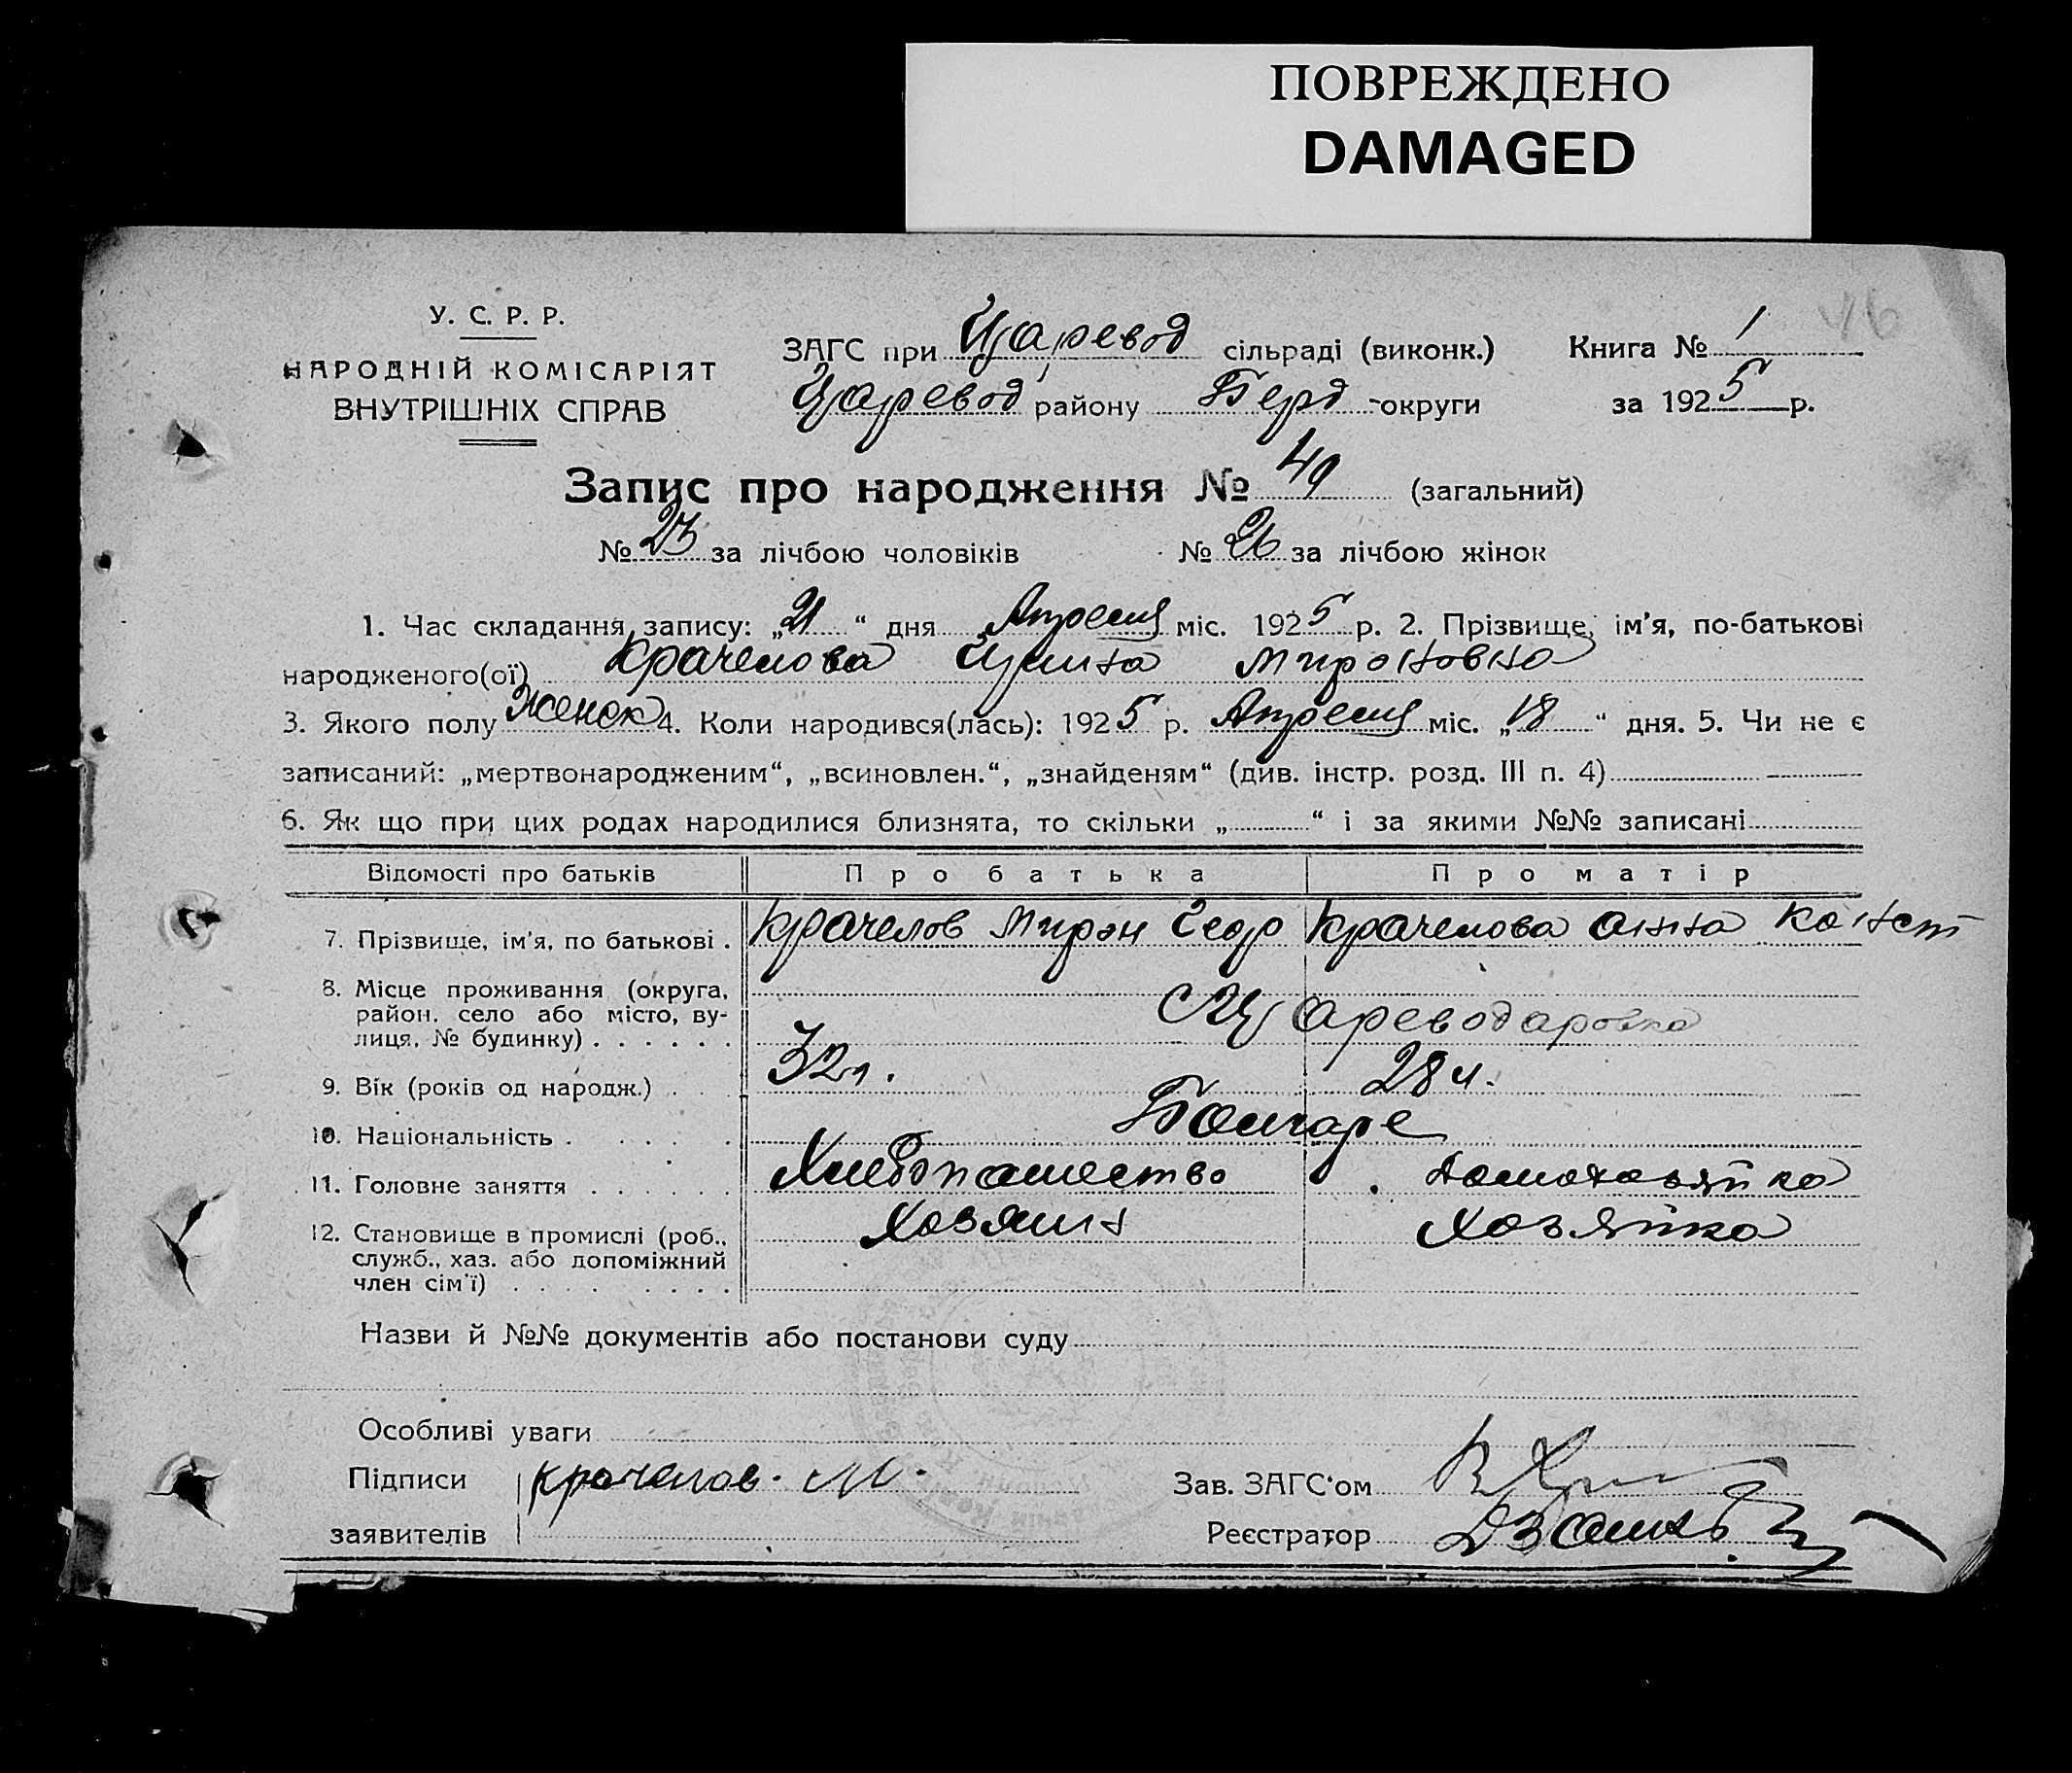 ПОВРЕЖДЕНО
DAMAGED
46
У. С. Р. Р.
НАРОДНІЙ КОМІСАРІЯТ
ВНУТРІШНІХ СПРАВ
ЗАГС при Царевод сільраді (виконк.) Книга № 1
Царевод району Берд округи за 1925 р.
Запис про народження № 49 (загальний)
№ 23 за лічбою чоловіків № 26 за лічбою жінок
1. Час складання запису: „21“ дня Апреля міс. 1925 р. 2. Прізвище, ім'я, по-батькові
народженого(ої) Крачелова Мироновна
3. Якого полу Женск 4. Коли народився(лась): 1925 р. Апреля міс. „18“ дня. 5. Чи не є
записаний: „мертвонародженим“, „всиновлен.“, „знайденям“ (див. інстр. розд. III п. 4)
6. Як що при цих родах народилися близнята, то скільки „ “ і за якими №№ записані
Відомості про батьків Про батька Про матір
7. Прізвище, ім'я, по батькові . Крачелов Мирон Геор Крачелова Анна Конст
8. Місце проживання (округа,
район, село або місто, ву-
лиця, № будинку) . . . . . . с Цареводаровка
9. Вік (років од народж.) . . 32 л. 28 л.
10. Національність . . . . . Болгаре
11. Головне заняття . . . . . . Хлебопашество Домохозяйка
12. Становище в промислі (роб., Хозяин Хозяйка
служб., хаз. або допоміжний
член сім'ї) . . . . . . . . .
Назви й №№ документів або постанови суду
Особливі уваги
Підписи Крачелов. М. Зав. ЗАГС'ом
заявителів Реєстратор